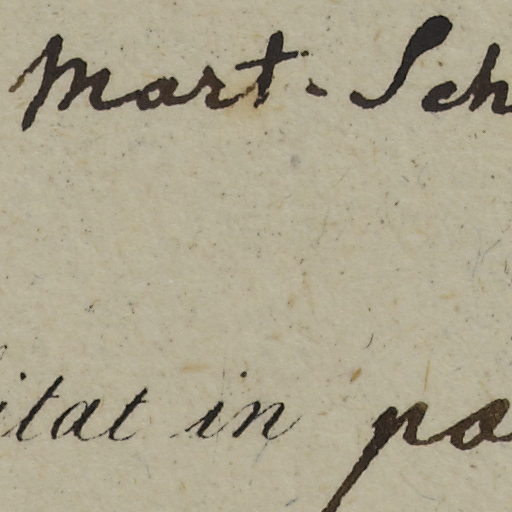 Mart. Sch
itat in pa